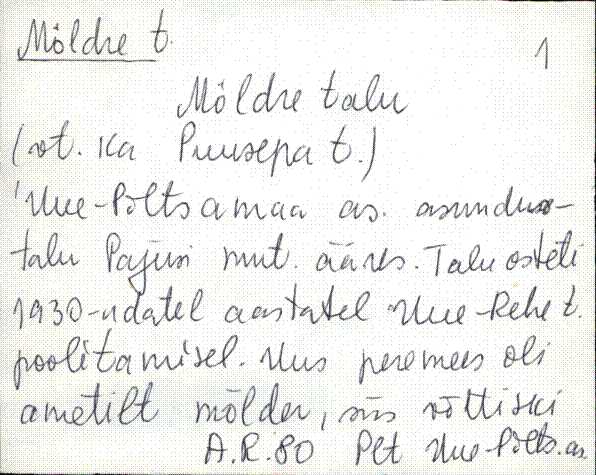 Möldre t.
1
Möldre talu
(vt. ka Puusepa t.)
'Uue-Põltsamaa as. asundus-
talu Pajusi mnt. ääres. Talu osteti
1930-ndatel aastatel Uue-Rehe t.
poolitamisel. Uus peremees oli
ametilt mölder, siis võttiski
A.R.80 Plt Uue-Põlts.as